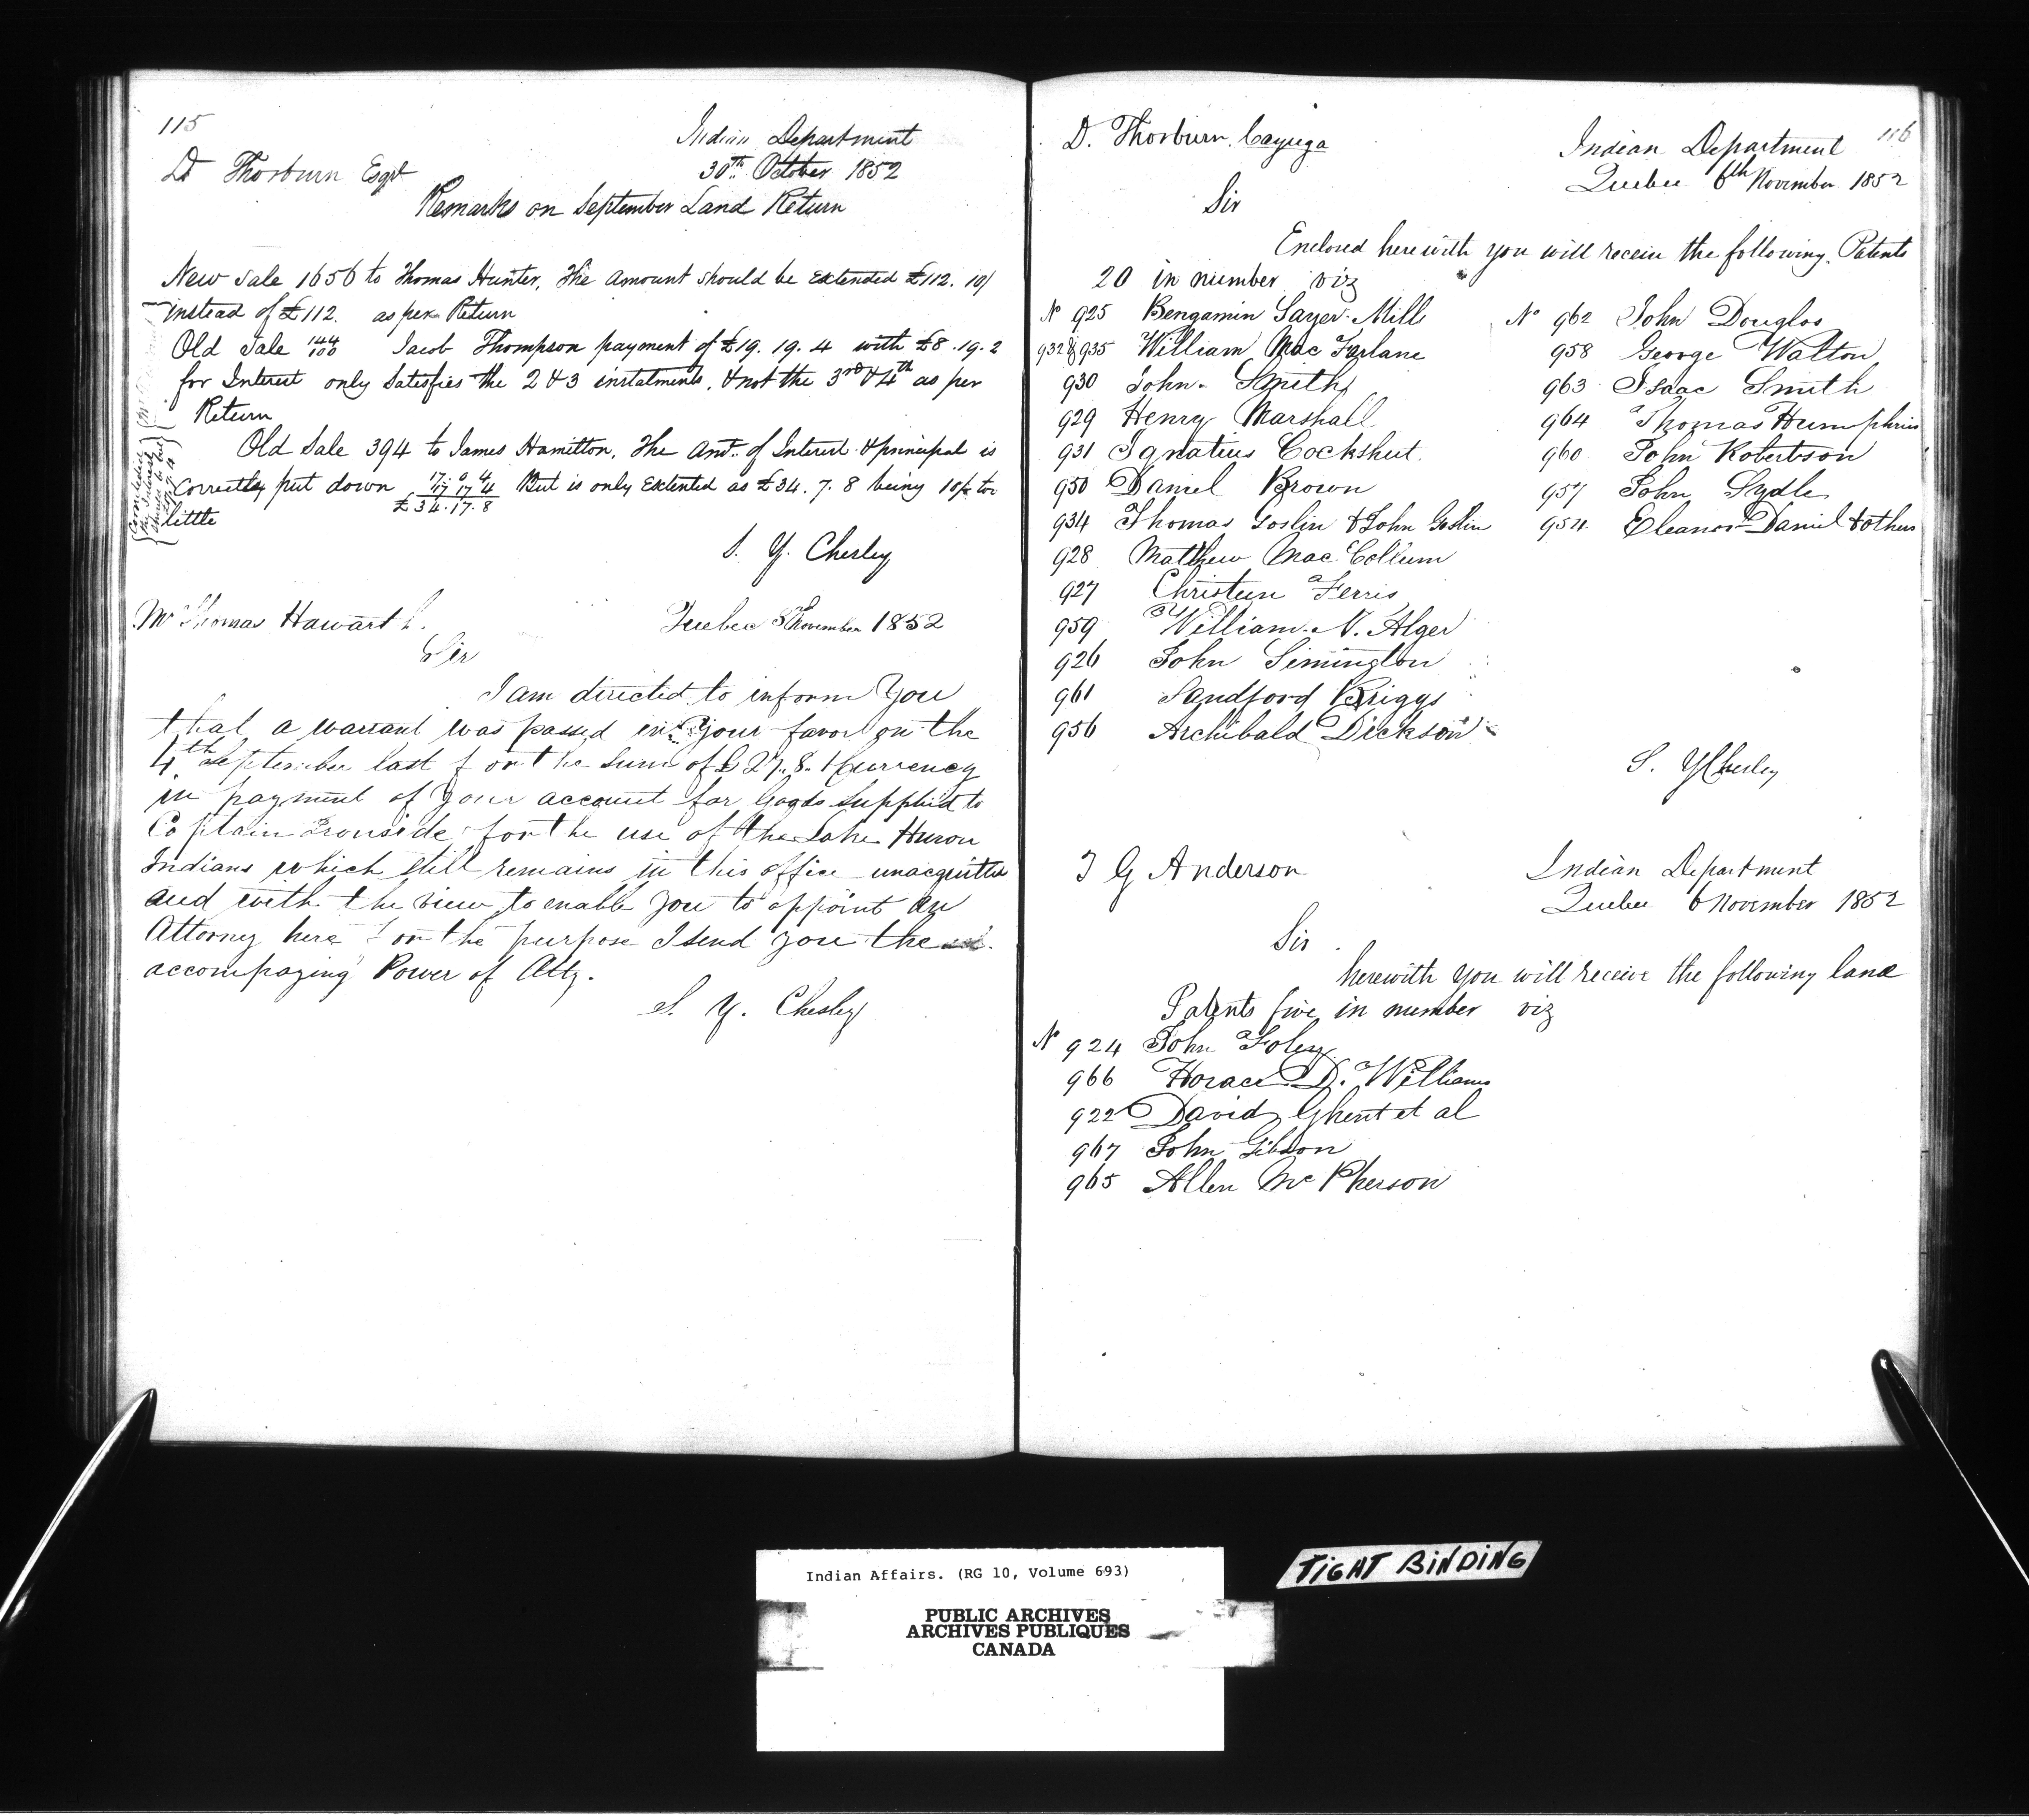 115
Indian Department
D Thorburn Esqr
30th October 1852
Remarks on September Land Return
New Sale 1656 to Thomas Hunter, The Amount should be Extended £112. 10/
instead of £112. as per Return
Old Sale 144/100 Jacob Thompson payment of £19. 19. 4 with £8. 19. 2
for Interest only Satisfies the 2 & 3 instalments, & not the 3rd & 4th as per
Return
Old Sale 394 to James Hamilton, The Amt. of Interest & principal is
Correctly put down 17 0 4
17 17 4
£34.17.8
But is only Extented as £34. 7. 8 being 10/ too
little
S. Y. Chesley
Mr Thomas Hawarth.
Quebec 5 November 1852
Sir
I am directed to inform You
that a warrant was passed in your favor on the
4th September last for the Sum of £27. 8. 1 Currency
in payment of your account for Goods Supplied to
Captain Ironside, for the use of the Lake Huron
Indians which still remains in this office unacquitted
and with the view to enable you to appoint an
Attorney here for the purpose I send you the
accompanying Power of Atty.
S. Y. Chesley
116
D. Thorburn. Cayuga
Indian Department
Quebec 6th November 1852
Sir
Enclosed herewith you will receive the following Patents
20 in number viz
No 925 Bengamin Sayer Mills
932 & 935 William Mac Farlane
930 John Smith
929 Henry Marshall
931 Ignatius Cockshut.
950 Daniel Brown
934 Thomas Goslin & John Goslin
928 Matthew Mac Collum
927 Christeen Ferris
959 William N. Alger
926 John Simington
961 Sandford Briggs
956 Archibald Dickson
No 962 John Douglas
958 George Walton
963 Isaac Smith
964 Thomas Humphries
960 John Robertson
957 John Sydle
954 Eleanor Daniel & others
S. Y Chesley
T G Anderson
Indian Department
Quebec 6 November 1852
Sir
herewith you will receive the following land
Patents five in number viz
No 924 John Foley
966 Horace D. Williams
922 David Ghent et al
967 John Gibson
965 Allen Mc Pherson
Indian Affairs. (RG 10, Volume 693)
PUBLIC ARCHIVES
ARCHIVES PUBLIQUES
CANADA
TIGHT BINDING